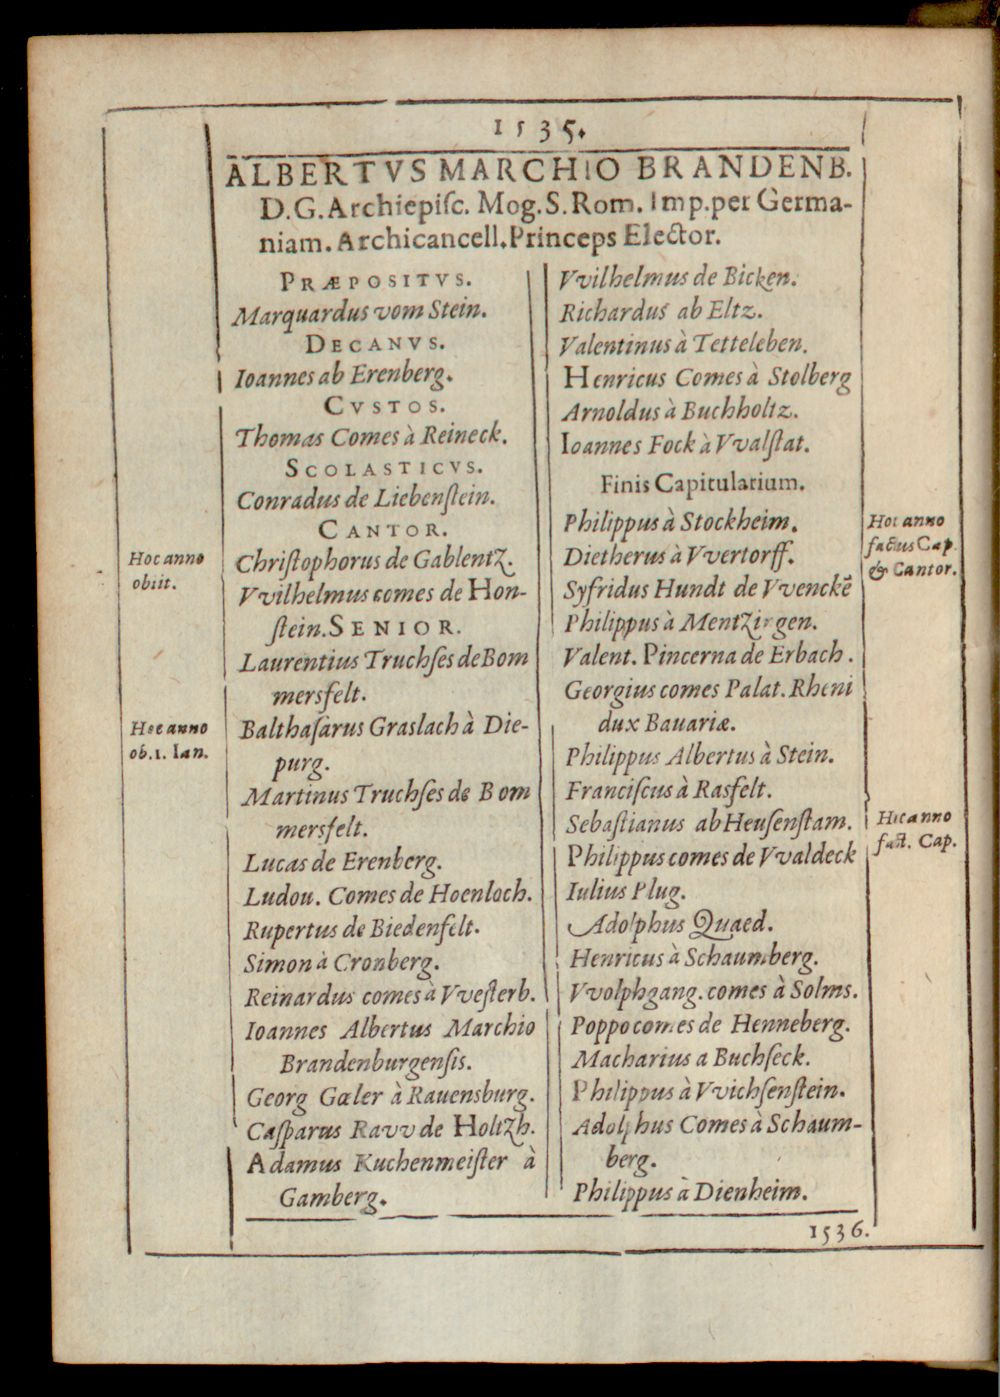 1535.
ALBERTVS MARCHIO BRANDENB.
D.G. Archiepiſc. Mog. S. Rom. Imp. per Germa-
niam. Archicancell. Princeps Elector.
PRÆPOSITVS.
Marquardus vom Stein.
DECANVS.
Ioannes ab Erenberg.
CVSTOS.
Thomas Comes à Reineck.
SCOLASTICVS.
Conradus de Liebenſtein.
CANTOR.
Hoc anno
obiit.
Chriſtophorus de Gablentz.
Vvilhelmus comes de Hon-
ſtein. SENIOR.
Laurentius Truchſes de Bom
mersfelt.
Hoc anno
ob. 1. Ian.
Balthaſarus Graslach à Die-
purg.
Martinus Truchſes de Bom
mersfelt.
Lucas de Erenberg.
Ludou. Comes de Hoenloch.
Rupertus de Biedenfelt.
Simon à Cronberg.
Reinardus comes à Vveſterb.
Ioannes Albertus Marchio
Brandenburgenſis.
Georg Gœler à Rauensburg.
Caſparus Ravv de Holtzh.
Adamus Kuchenmeiſter à
Gamberg.
Vvilhelmus de Bicken.
Richardus ab Eltz.
Valentinus à Tetteleben.
Henricus Comes à Stolberg
Arnoldus à Buchholtz.
Ioannes Fock à Vvalſtat.
Finis Capitularium.
Philippus à Stockheim.
Hoc anno
factus Cap.
& Cantor.
Dietherus à Vvertorff.
Syfridus Hundt de Vvenckẽ
Philippus à Mentzirgen.
Valent. Pincerna de Erbach.
Georgius comes Palat. Rheni
dux Bauariæ.
Philippus Albertus à Stein.
Franciſcus à Rasfelt.
Sebaſtianus ab Heuſenſtam.
Hoc anno
fact. Cap.
Philippus comes de Vvaldeck
Iulius Plug.
Adolphus Quaed.
Henricus à Schaumberg.
Vvolphgang. comes à Solms.
Poppo comes de Henneberg.
Macharius a Buchſeck.
Philippus à Vvichſenſtein.
Adolphus Comes à Schaum-
berg.
Philippus à Dienheim.
1536.